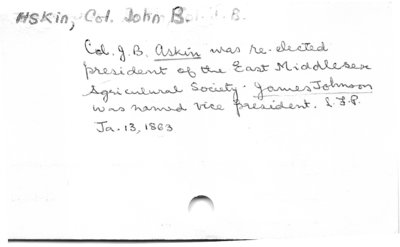 Askin, Col. John B.
Col. J. B. Askin was re-elected
president of the East Middlesex
Agricultural Society. James Johnson
was named vice president. L.F.P.
Ja. 13, 1863